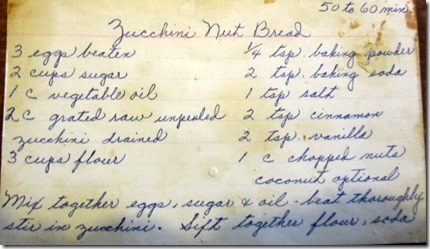 50 to 60 min.
Zucchini Nut Bread
3 eggs beaten
2 cups sugar
1 C vegetable oil
2 C grated raw unpealed
zucchini drained
3 cups flour
1/4 tsp. baking powder
2 tsp. baking soda
1 tsp salt
2 tsp cinnamon
2 tsp. vanilla
1 c chopped nuts
coconut optional
Mix together eggs, sugar & oil - beat thoroughly
stir in zucchini. Sift together flour, soda